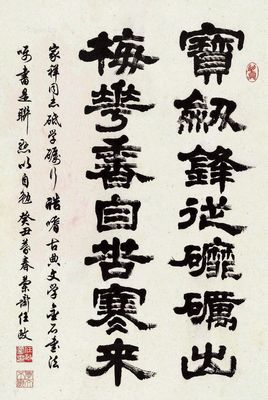 寶劔鋒從磨礪出
梅華香自苦寒来
家祥同志砥学礪行酷嗜古典文学金石書法
嘱書是聯以自勉癸丑暮春蘭斋任政